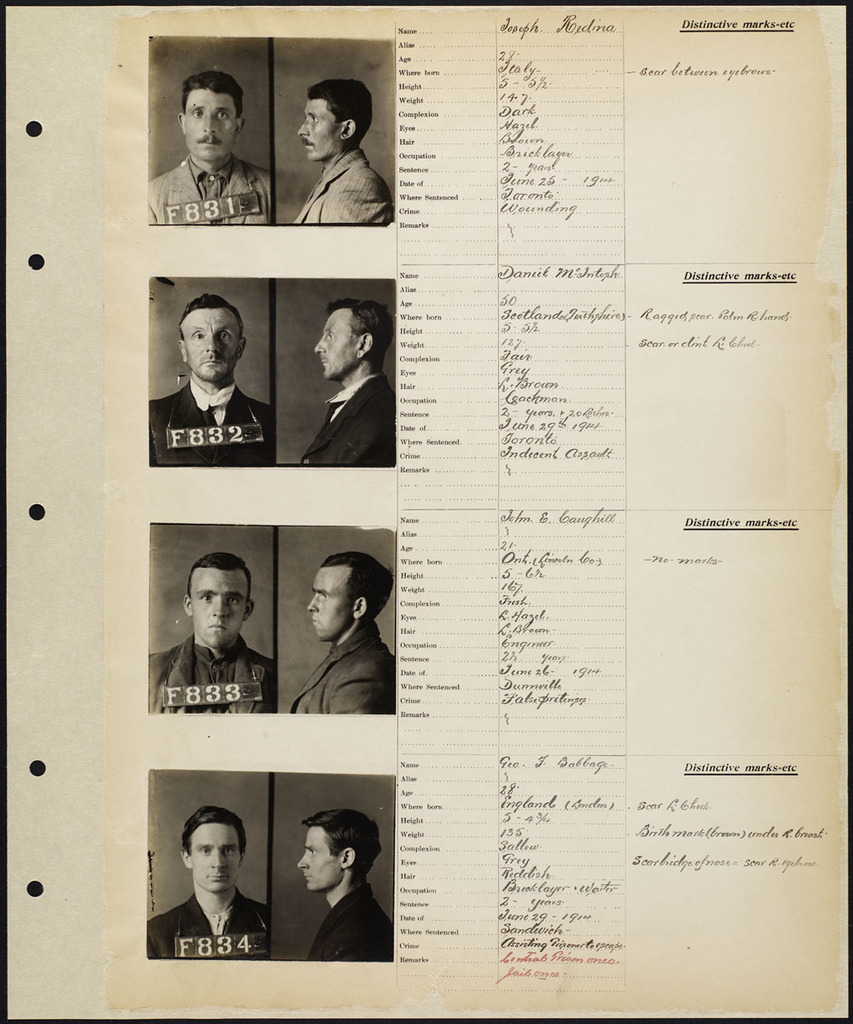 Name Joseph Redina
Alias
Age 28
Where born Italy
Height 5 - 5½
Weight 147
Complexion Dark
Eyes Hazel
Hair Brown
Occupation Bricklayer
Sentence 2 - years
Date of June 25 - 1914
Where Sentenced Toronto
Crime Wounding
Remarks
Distinctive marks-etc
- Scar between eyebrows -
F831
Name Daniel McIntosh
Alias
Age 50
Where born Scotland (Perthshire)
Height 5 - 5½
Weight 127
Complexion Fair
Eyes Grey
Hair L. Brown
Occupation Coachman
Sentence 2 - years + 20 lashes
Date of June 29th 1914
Where Sentenced Toronto
Crime Indecent Assault
Remarks
Distinctive marks-etc
- Ragged scar Palm R. hand.
- Scar or dint L. Cheek -
F832
Name John E. Caughill
Alias
Age 21
Where born Ont. (Lincoln Co)
Height 5 - 6½
Weight 167
Complexion Fresh
Eyes L. Hazel
Hair L. Brown
Occupation Engineer
Sentence 2½ years
Date of June 26 - 1914
Where Sentenced Dunnville
Crime False pretenses
Remarks
Distinctive marks-etc
- No - marks -
F833
Name Geo. F. Babbage
Alias
Age 28
Where born England (London)
Height 5 - 4¾
Weight 135
Complexion Sallow
Eyes Grey
Hair Reddish
Occupation Bricklayer + Waiter
Sentence 2 - years
Date of June 29 - 1914
Where Sentenced Sandwich
Crime Assisting Prisoner to escape
Remarks Central Prison once
Jail once -
Distinctive marks-etc
- Scar L. Cheek
- Birth mark (brown) under R. breast
Scar bridge of nose = scar R. eyebrow
F834